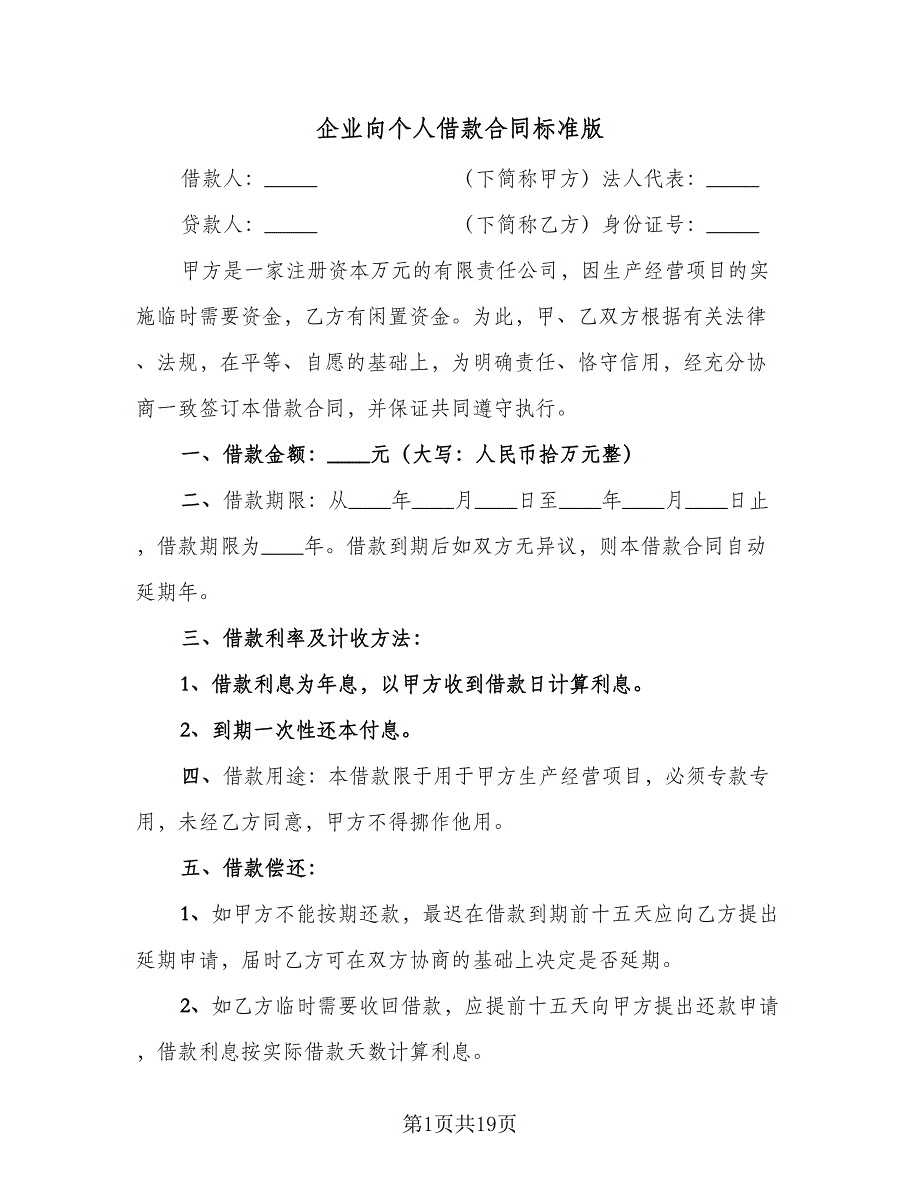 企业向个人借款合同标准版
借款人：_____ （下简称甲方）法人代表：_____
贷款人：_____ （下简称乙方）身份证号：_____
甲方是一家注册资本万元的有限责任公司，因生产经营项目的实
施临时需要资金，乙方有闲置资金。为此，甲、乙双方根据有关法律
、法规，在平等、自愿的基础上，为明确责任、恪守信用，经充分协
商一致签订本借款合同，并保证共同遵守执行。
一、借款金额：____元（大写：人民币拾万元整）
二、借款期限：从____年____月____日至____年____月____日止
，借款期限为____年。借款到期后如双方无异议，则本借款合同自动
延期年。
三、借款利率及计收方法：
1、借款利息为年息，以甲方收到借款日计算利息。
2、到期一次性还本付息。
四、借款用途：本借款限于用于甲方生产经营项目，必须专款专
用，未经乙方同意，甲方不得挪作他用。
五、借款偿还：
1、如甲方不能按期还款，最迟在借款到期前十五天应向乙方提出
延期申请，届时乙方可在双方协商的基础上决定是否延期。
2、如乙方临时需要收回借款，应提前十五天向甲方提出还款申请
，借款利息按实际借款天数计算利息。
第1页共19页